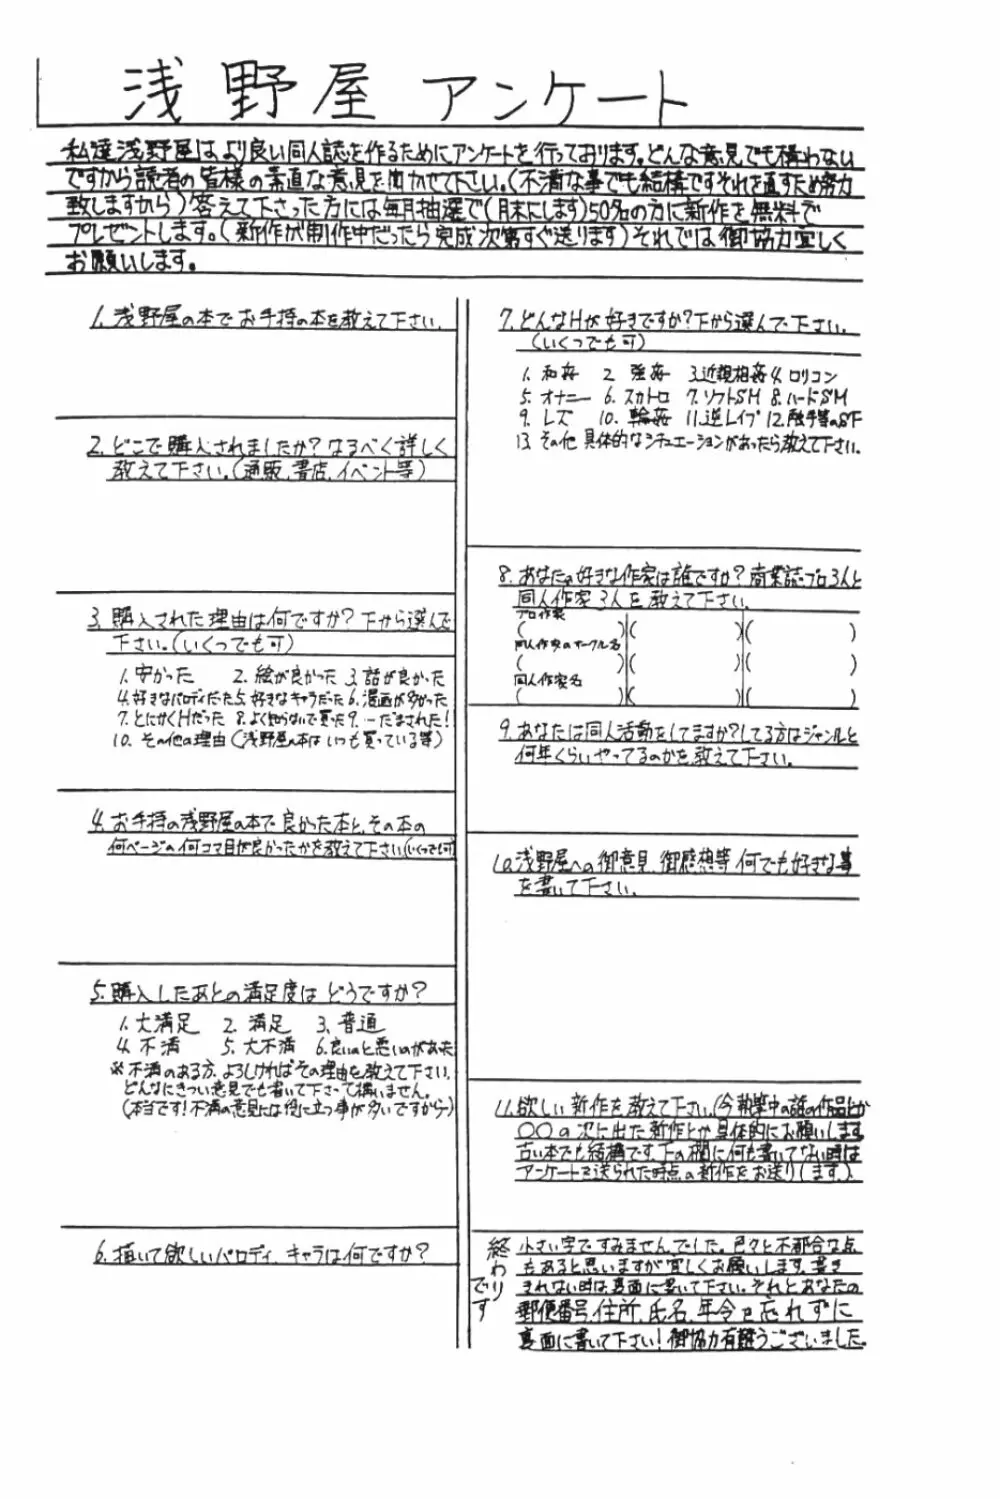 浅野屋 アンケート
私達浅野屋は、より良い同人誌を作るためにアンケートを行っております。どんな意見でも構わない
ですから読者の皆様の素直な意見を聞かせて下さい。(不満な事でも結構ですそれを直すため努力
致しますから)答えて下さった方には毎月抽選で(月末にします)50名の方に新作を無料で
プレゼントします。(新作が制作中だったら完成次第すぐ送ります)それでは御協力宜しく
お願いします。
1. 浅野屋の本でお手持の本を教えて下さい。
2. どこで購入されましたか?なるべく詳しく
教えて下さい。(通販、書店、イベント等)
3. 購入された理由は何ですか?下から選んで
下さい。(いくつでも可)
1. 安かった 2. 絵が良かった 3. 話が良かった
4. 好きなパロディだった 5. 好きなキャラだった 6. 漫画が多かった
7. とにかくHだった 8. よく知らないで買った 9. …だまされた!
10. その他の理由(浅野屋の本はいつも買っている等)
4. お手持の浅野屋の本で良かった本と、その本の
何ページの何コマ目が良かったかを教えて下さい(いくつでも可)
5. 購入したあとの満足度はどうですか?
1. 大満足 2. 満足 3. 普通
4. 不満 5. 大不満 6. 良いのと悪いのがあった
※不満のある方、よろしければその理由を教えて下さい。
どんなにきつい意見でも書いて下さって構いません。
(本当です!不満の意見には役に立つ事が多いですから)
6. 描いて欲しいパロディ、キャラは何ですか?
7. どんなHが好きですか?下から選んで下さい。
(いくつでも可)
1. 和姦 2. 強姦 3. 近親相姦 4. ロリコン
5. オナニー 6. スカトロ 7. ソフトSM 8. ハードSM
9. レズ 10. 輪姦 11. 逆レイプ 12. 触手等のSF
13. その他 具体的なシチュエーションがあったら教えて下さい。
8. あなたの好きな作家は誰ですか?商業誌・プロ3人と
同人作家3人を教えて下さい。
プロ作家
( ) ( ) ( )
同人作家のサークル名
( ) ( ) ( )
同人作家名
( ) ( ) ( )
9. あなたは同人活動をしてますか?してる方はジャンルと
何年くらいやってるのかを教えて下さい。
10. 浅野屋への御意見、御感想等何でも好きな事
を書いて下さい。
11. 欲しい新作を教えて下さい。(今執筆中の話の作品とか
〇〇の次に出た新作とか具体的にお願いします
古い本でも結構です。下の欄に何も書いてない時は
アンケートを送られた時点の新作をお送りします。)
終わりです
小さい字ですみませんでした。色々と不都合な点
もあると思いますが宜しくお願いします。書き
きれない時は裏面に書いて下さい。それとあなたの
郵便番号、住所、氏名、年令を忘れずに
裏面に書いて下さい!御協力有難うございました。